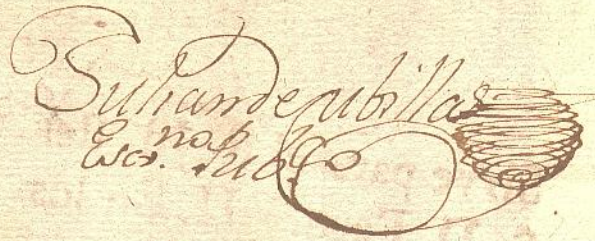 Julian de cubillas
Escrno. Pubco